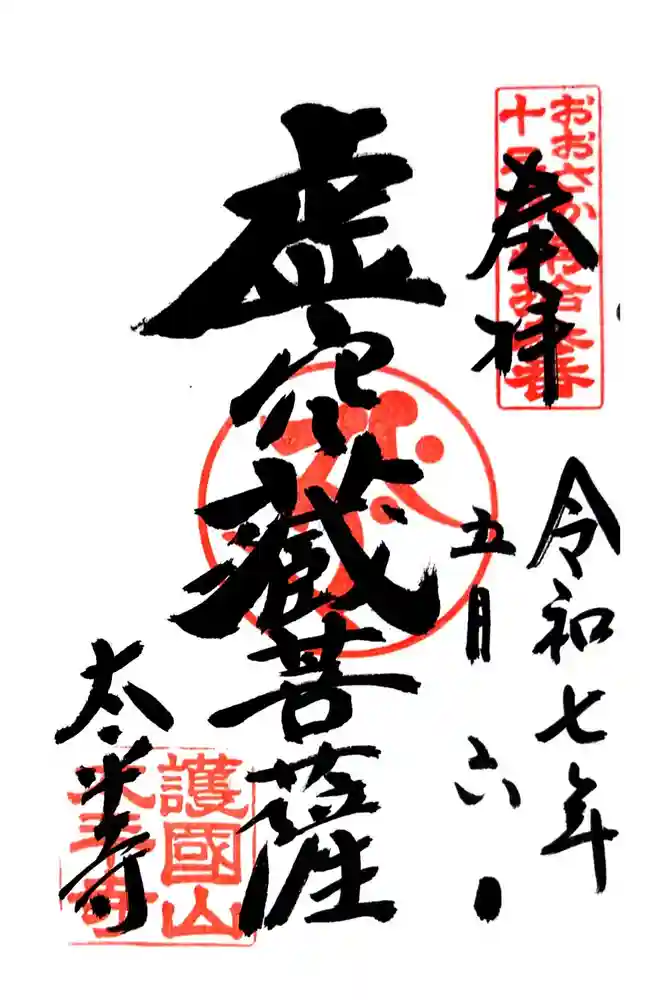 おおさか
十
奉拝
令和七年
五月六日
虚空藏菩薩
太平寺
護國山
太平寺